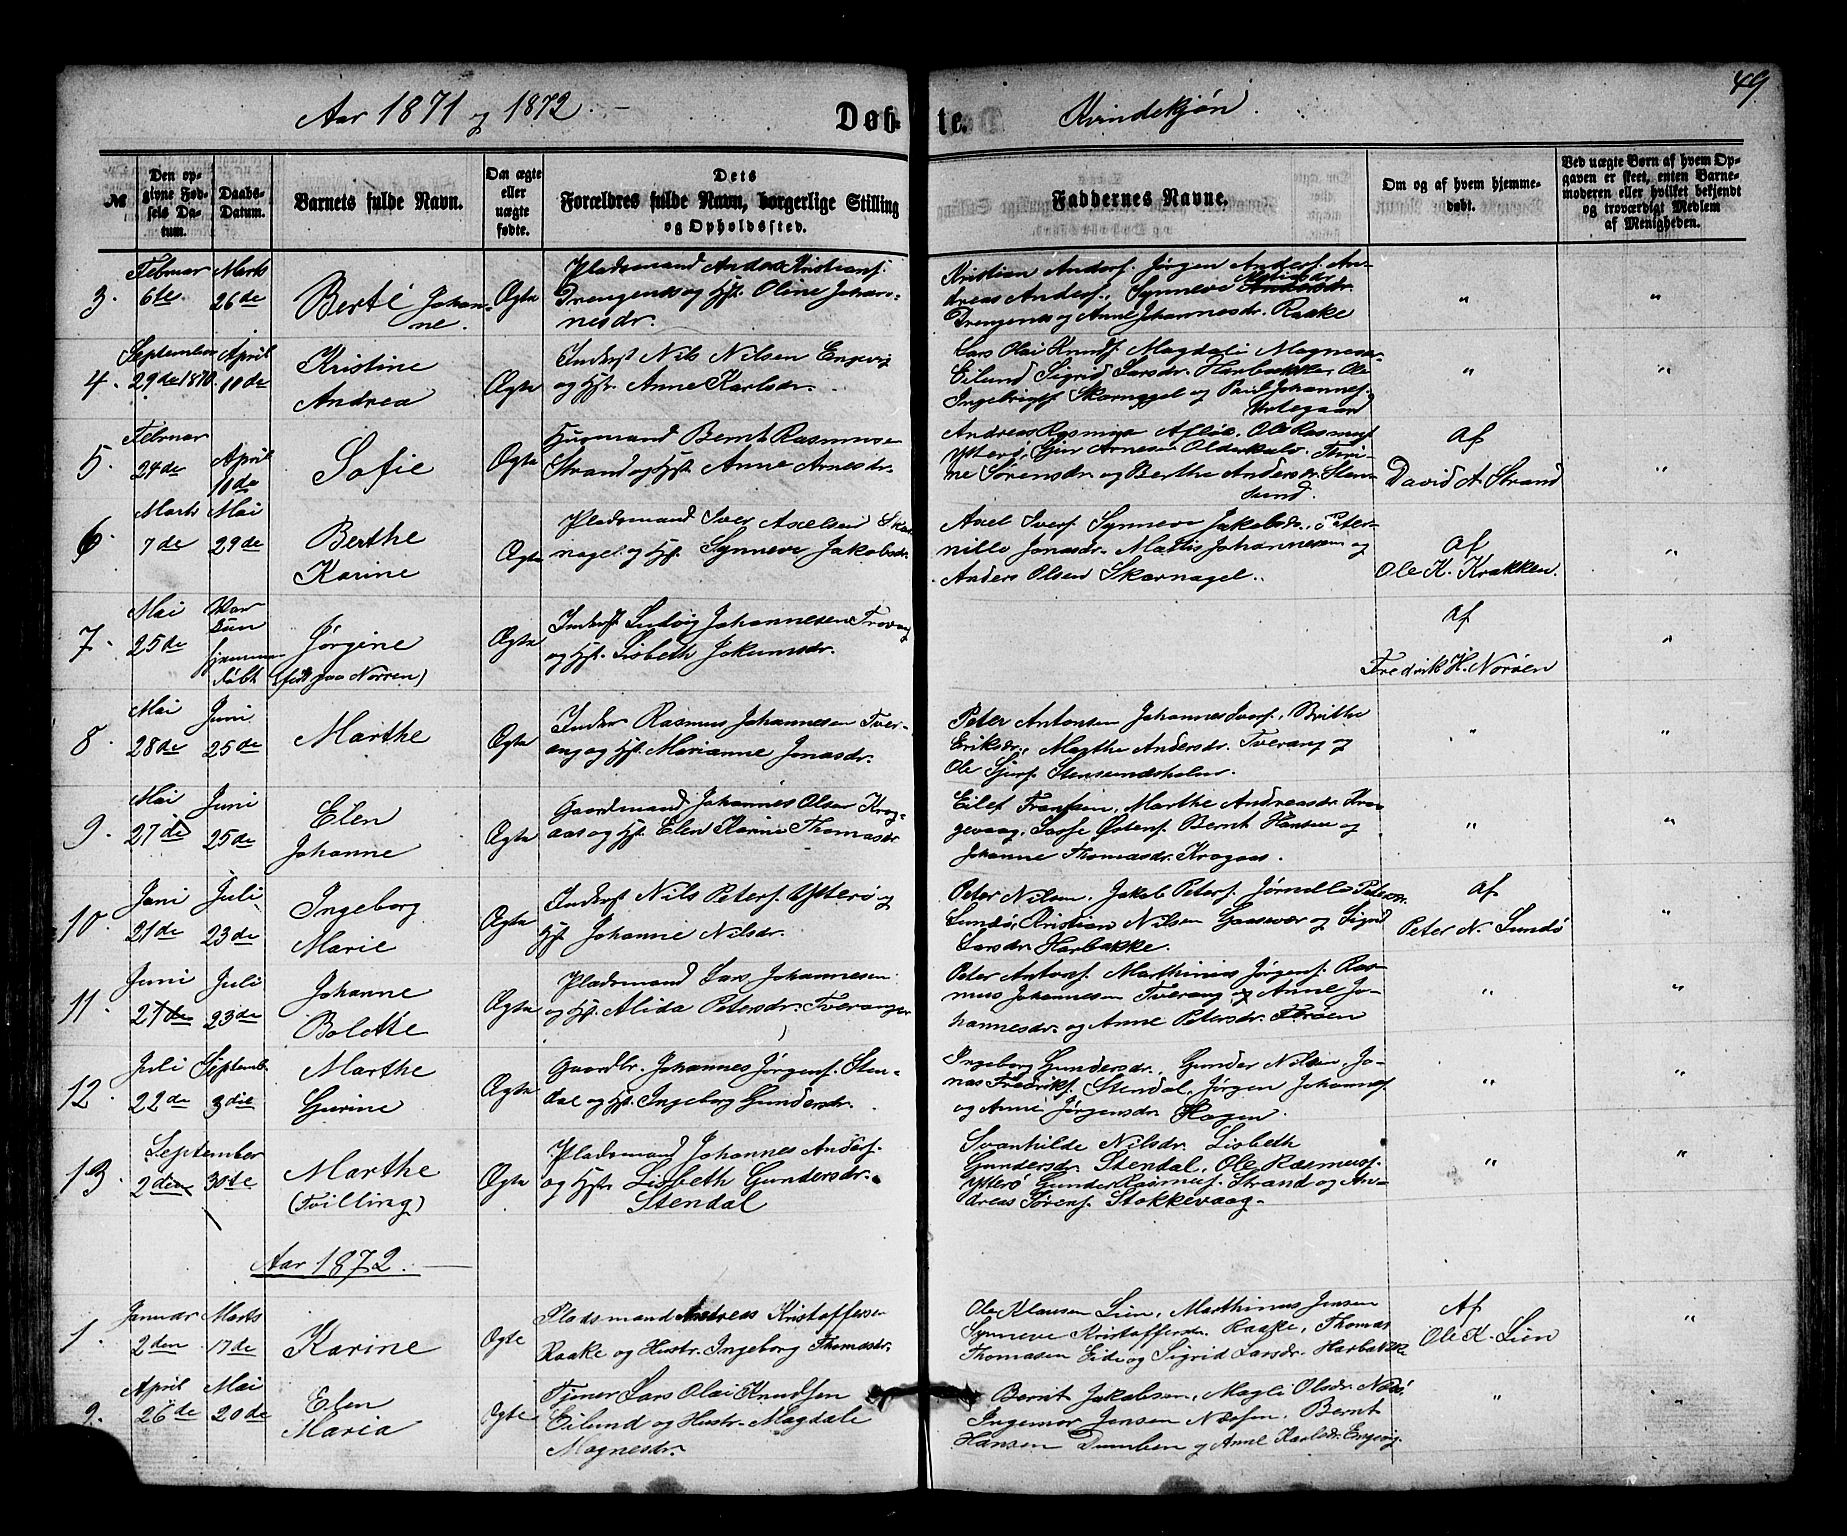 49
Aar 1871 og 1872. Døbte. Kvindekjøn.
№ | Den opgivne Fødsels Datum. | Daabs-Datum. | Barnets fulde Navn. | Om ægte eller uægte fødte. | Dets Forældres fulde Navn, borgerlige Stilling og Opholdssted. | Faddernes Navne. | Om og af hvem hjemmedøbt. | Ved uægte Børn af hvem Opgaven er skeet, enten Barnemoderen eller hvilket bekjendt og troværdigt Medlem af Menigheden.
3. Februar 6te Marts 26de Berte Johanne. Ægte
Pladsmand Anders Kristiansf.
Drengenes og Hst. Oline Johan-
nesdr.
Kristian Andersf. Jørgen Andersf. An-
dreas Andersf., Synneve
Drengenes og Anne Johannesdr. Raake
" "
4. September 29de 1870. April 10de Kristine Andrea Ægte
Inderst Nils Nilsen Engvig
og Hst. Anne Karlsdr.
Lars Olai Knudsf. Magdali Magnes-
Eilund Sigrid Larsdr. Harbakken, Ole
Ingebrigtsf. Skarnagel og Paul Johannesf.
" "
5. Februar 24de April 10de Sofie Ægte
Husmand Bernt Rasmusen
Strand og Hst. Anne Arnesdr.
Andreas Ole Rasmusf.
Yterø, Arnesen Olderkalv.
ne Sørensdr. og Berthe Andersdr. Sten-
sund.
af
David A. Strand
"
6. Marts 7de Mai 29de Berthe Karine Ægte
Pladsmand Iver Axelsen Skar-
nagel og Hst. Synneve Jakobsdr.
Axel Iversf. Synneve Jakobsdr., Peter-
nille Jonasdr. Mattis Johannesen og
Anders Olsen Skarnagel.
af
Ole K. Krakken.
"
7. Mai 25de Var kun hjemmedøbt Jørgine (født paa Norøen) Ægte
Inderst Ludvig Johannesen Tvervang
og Hst. Lisbeth Jokumsdr.
af
Fredrik H. Norøen
"
8. Mai 28de Juni 25de Marthe Ægte
Inderst Rasmus Johannesen Tver-
ang og Hst. Marianne Jonasdr.
Peter Antonsen Johannes Iversf., Brithe
Eriksdr., Magthe Andersdr. Tverang og
Ole Stensundsholm.
" "
9. Mai 27de Juni 25de Elen Johanne Ægte
Gaardmand Johannes Olsen Krog-
aas og Hst. Elen Karine Thomasdr.
Eilef Fransen, Marthe Andreasdr. Kra-
gevaag, Lasse Østensf. Bernt Hansen og
Johanne Thomasdr. Krogaas.
" "
10. Juni 21de Juli 23de Ingeborg Marie Ægte
Inderst Nils Petersf. Ytterø og
Hst. Johanne Nilsdr.
Peter Nilsen, Jakob Petersf. Petersdr.
Sundø, Kristian Nilsen Gaasevær og Sigrid
Larsdr. Harbakke.
af
Peter N. Sundø
"
11. Juni 27de Juli 23de Johanne Bolette Ægte
Pladsmand Lars Johannesen
og Hst. Alida Petersdr. Tveranger
Peter Antonsf. Marthinius Jørgensf. Ras-
mus Johannesen Tverang og Anne Jo-
hannesdr. og Anne Petersdr.
" "
12. Juli 22de Septemb. 3die Marthe Gurine Ægte
Gaardbr. Johannes Jørgensf. Sten-
dal og Hst. Ingeborg Gundersdr.
Ingeborg Gundersdr., Gunder Nilsen, Jo-
nas Fredriksf. Stendal, Jørgen Johannesf
og Anne Jørgensdr. Hagen.
" "
13. September 2den 30te Marthe (Tvilling) Ægte
Pladsmand Johannes Andersf.
og Hstr. Lisbeth Gundersdr.
Stendal
Svanhilde Nilsdr. Lisbeth
Gundersdr. Stendal, Ole Rasmusf.
Ytterø Gunder Rasmusf. Strand og An-
dreas Sørensf. Stokkevaag.
" "
Aar 1872.
1. Januar 2den Marts 17de Karine Ægte
Pladsmand Andreas Kristoffersen
Raake og Hustr. Ingeborg Thomasdr.
Ole Klausen Lien, Marthinus Jensen
Synneve Kristoffersdr. Raake, Thomas
Thomasen Eide og Sigrid Larsdr. Harbakke
Af
Ole K. Lien
"
2. April 26de Mai 20de Elen Maria Ægte
Tjener Lars Olai Knudsen
Eilund og Hustr. Magdale
Magnesdr.
Bernt Jakobsen, Magli Olsdr. Næs,
Ingemor Jensen Næssen, Bernt
Hansen Dumben og Anne Karlsdr. Engvig.
" "